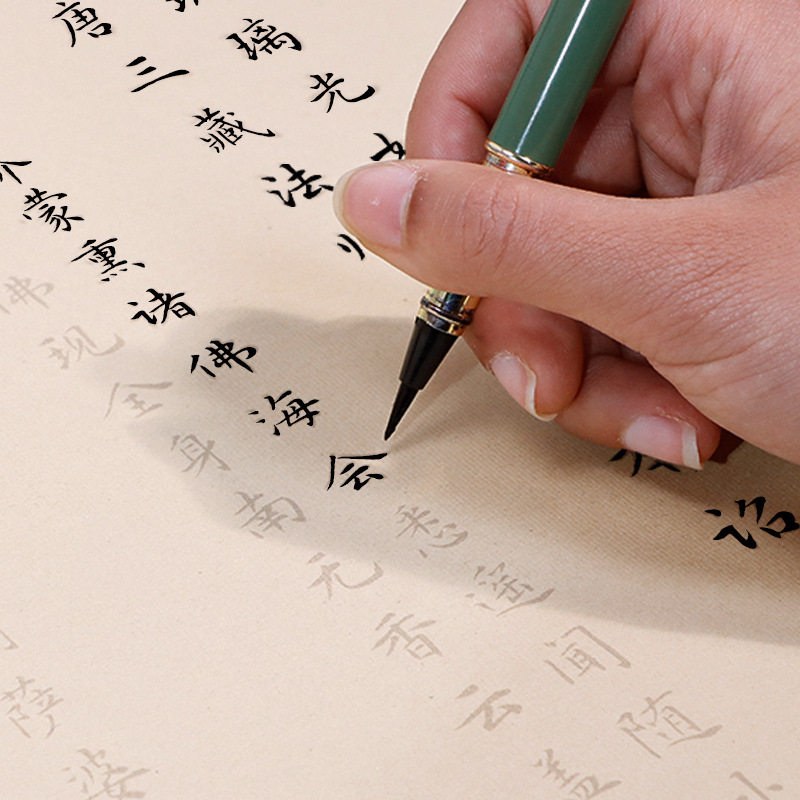 璃光
唐三藏法诏
蒙熏诸佛海会悉遥闻随
佛现全身南无香云盖
萨婆